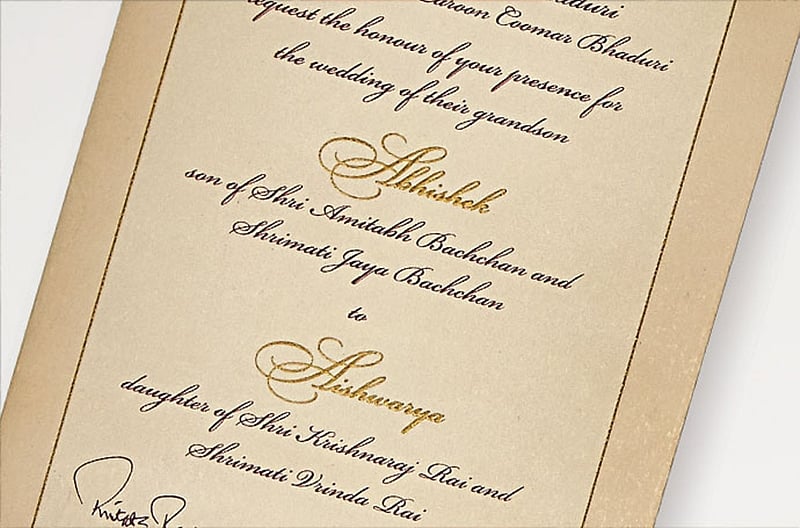 Caroon Coomar Bhaduri
request the honour of your presence for
the wedding of their grandson
Abhishek
son of Shri Amitabh Bachchan and
Shrimati Jaya Bachchan
to
Aishwarya
daughter of Shri Krishnaraj Rai and
Shrimati Vrinda Rai